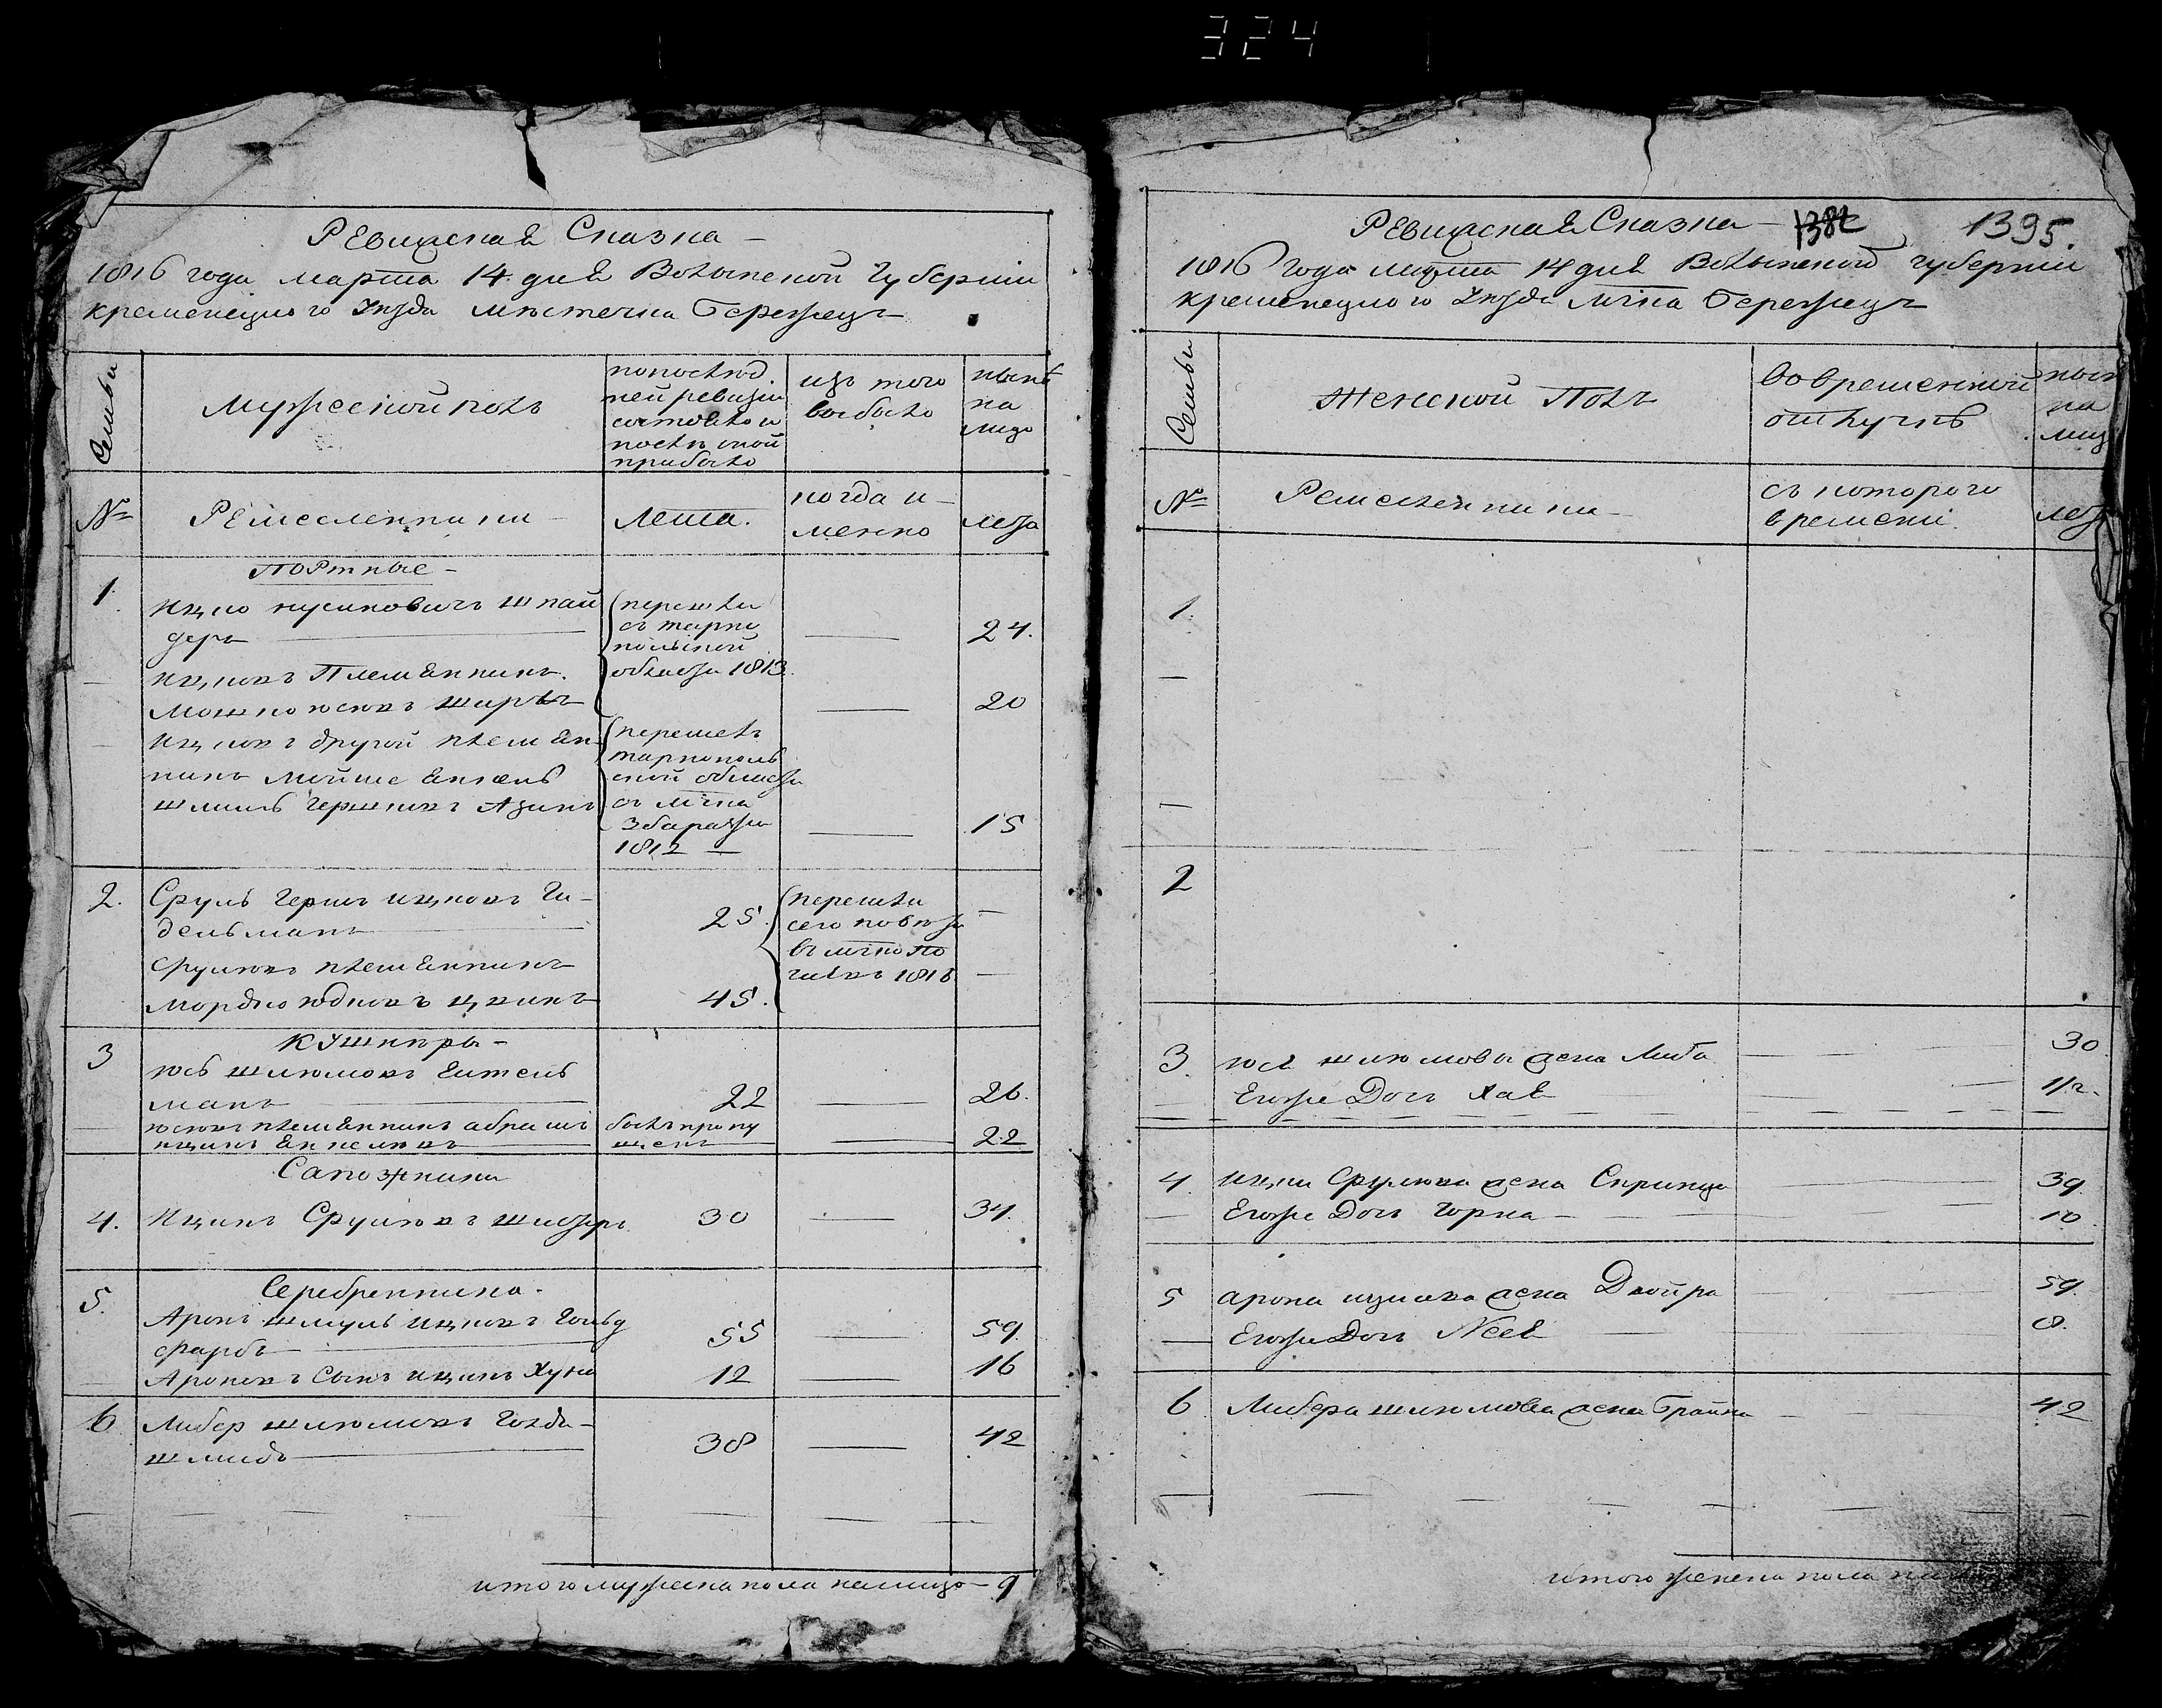 324
Ревижская Сказка –
1816 года марта 14. дня Волынской Губернии
кременецкого Уезда местечка Бережец
Семьи
Мужеской полъ
попослед.
ней ревизии
состояло и
после оной
прибыло
изъ того
выбыло
ныне
на
лицо
№
Ремесленники –
Лета.
когда и–
менно
лета
Портные –
1.
Ицко Нусиновичъ Шнай
деръ
24.
(перешли
съ тарно
польской
области 1813
Ицковъ Племянникъ.
Мошко Юсковъ
20
Ицковъ другой племян–
никъ Мойше Янкель
Шмиль Гершковъ
15
(перешелъ
тарнополь
ской области
съ мѣчка
Збаража
1812 –
2.
Сруль Герш Ицковъ Ги–
дельманъ
25.
(перешли
сего повета
въ мѣчко По
1816
–
Срулювъ племянникъ
Мордко Юдковъ
45.
–
3
Кушнѣры –
Юсь Шлюмовъ Ейтель
манъ
22
26.
Юсковъ племянникъ абрамъ
ицикъ Янкелювъ
былъ пропу
щенъ
22
Сапожники
4.
Ицикъ Срулювъ
30
34.
5.
Серебренники.
Аронъ Шмуль Ицковъ Гольд
фарбъ
55
59.
Ароновъ Сынъ Ицикъ Хуна
12
16
6
Либер Шлюмовъ Голда–
шмидъ
38
42
итого мужеска пола налицо – 9
Ревижская Сказка –
1395.
1816 года марта 14 дня Волынской губернии
кременецкого Уезда мѣчка Бережецъ
Семьи
Женской Полъ
во временной
отлучке
ныне
на
лиц
№
Ремесленники –
съ которого
времени.
лета
1.
–
–
2
3.
Юся Шлюмова жена Либа
30
Егоже Дочь Хая
1/2.
4.
Ицка Срулюва жена Спринца
39.
Егоже Дочь Горка –
10.
5
арона ицкова жена Двойра
59.
Егоже Дочь Нея
8.
6
Либера шлюмова жена Брайна
42
итого женска пола